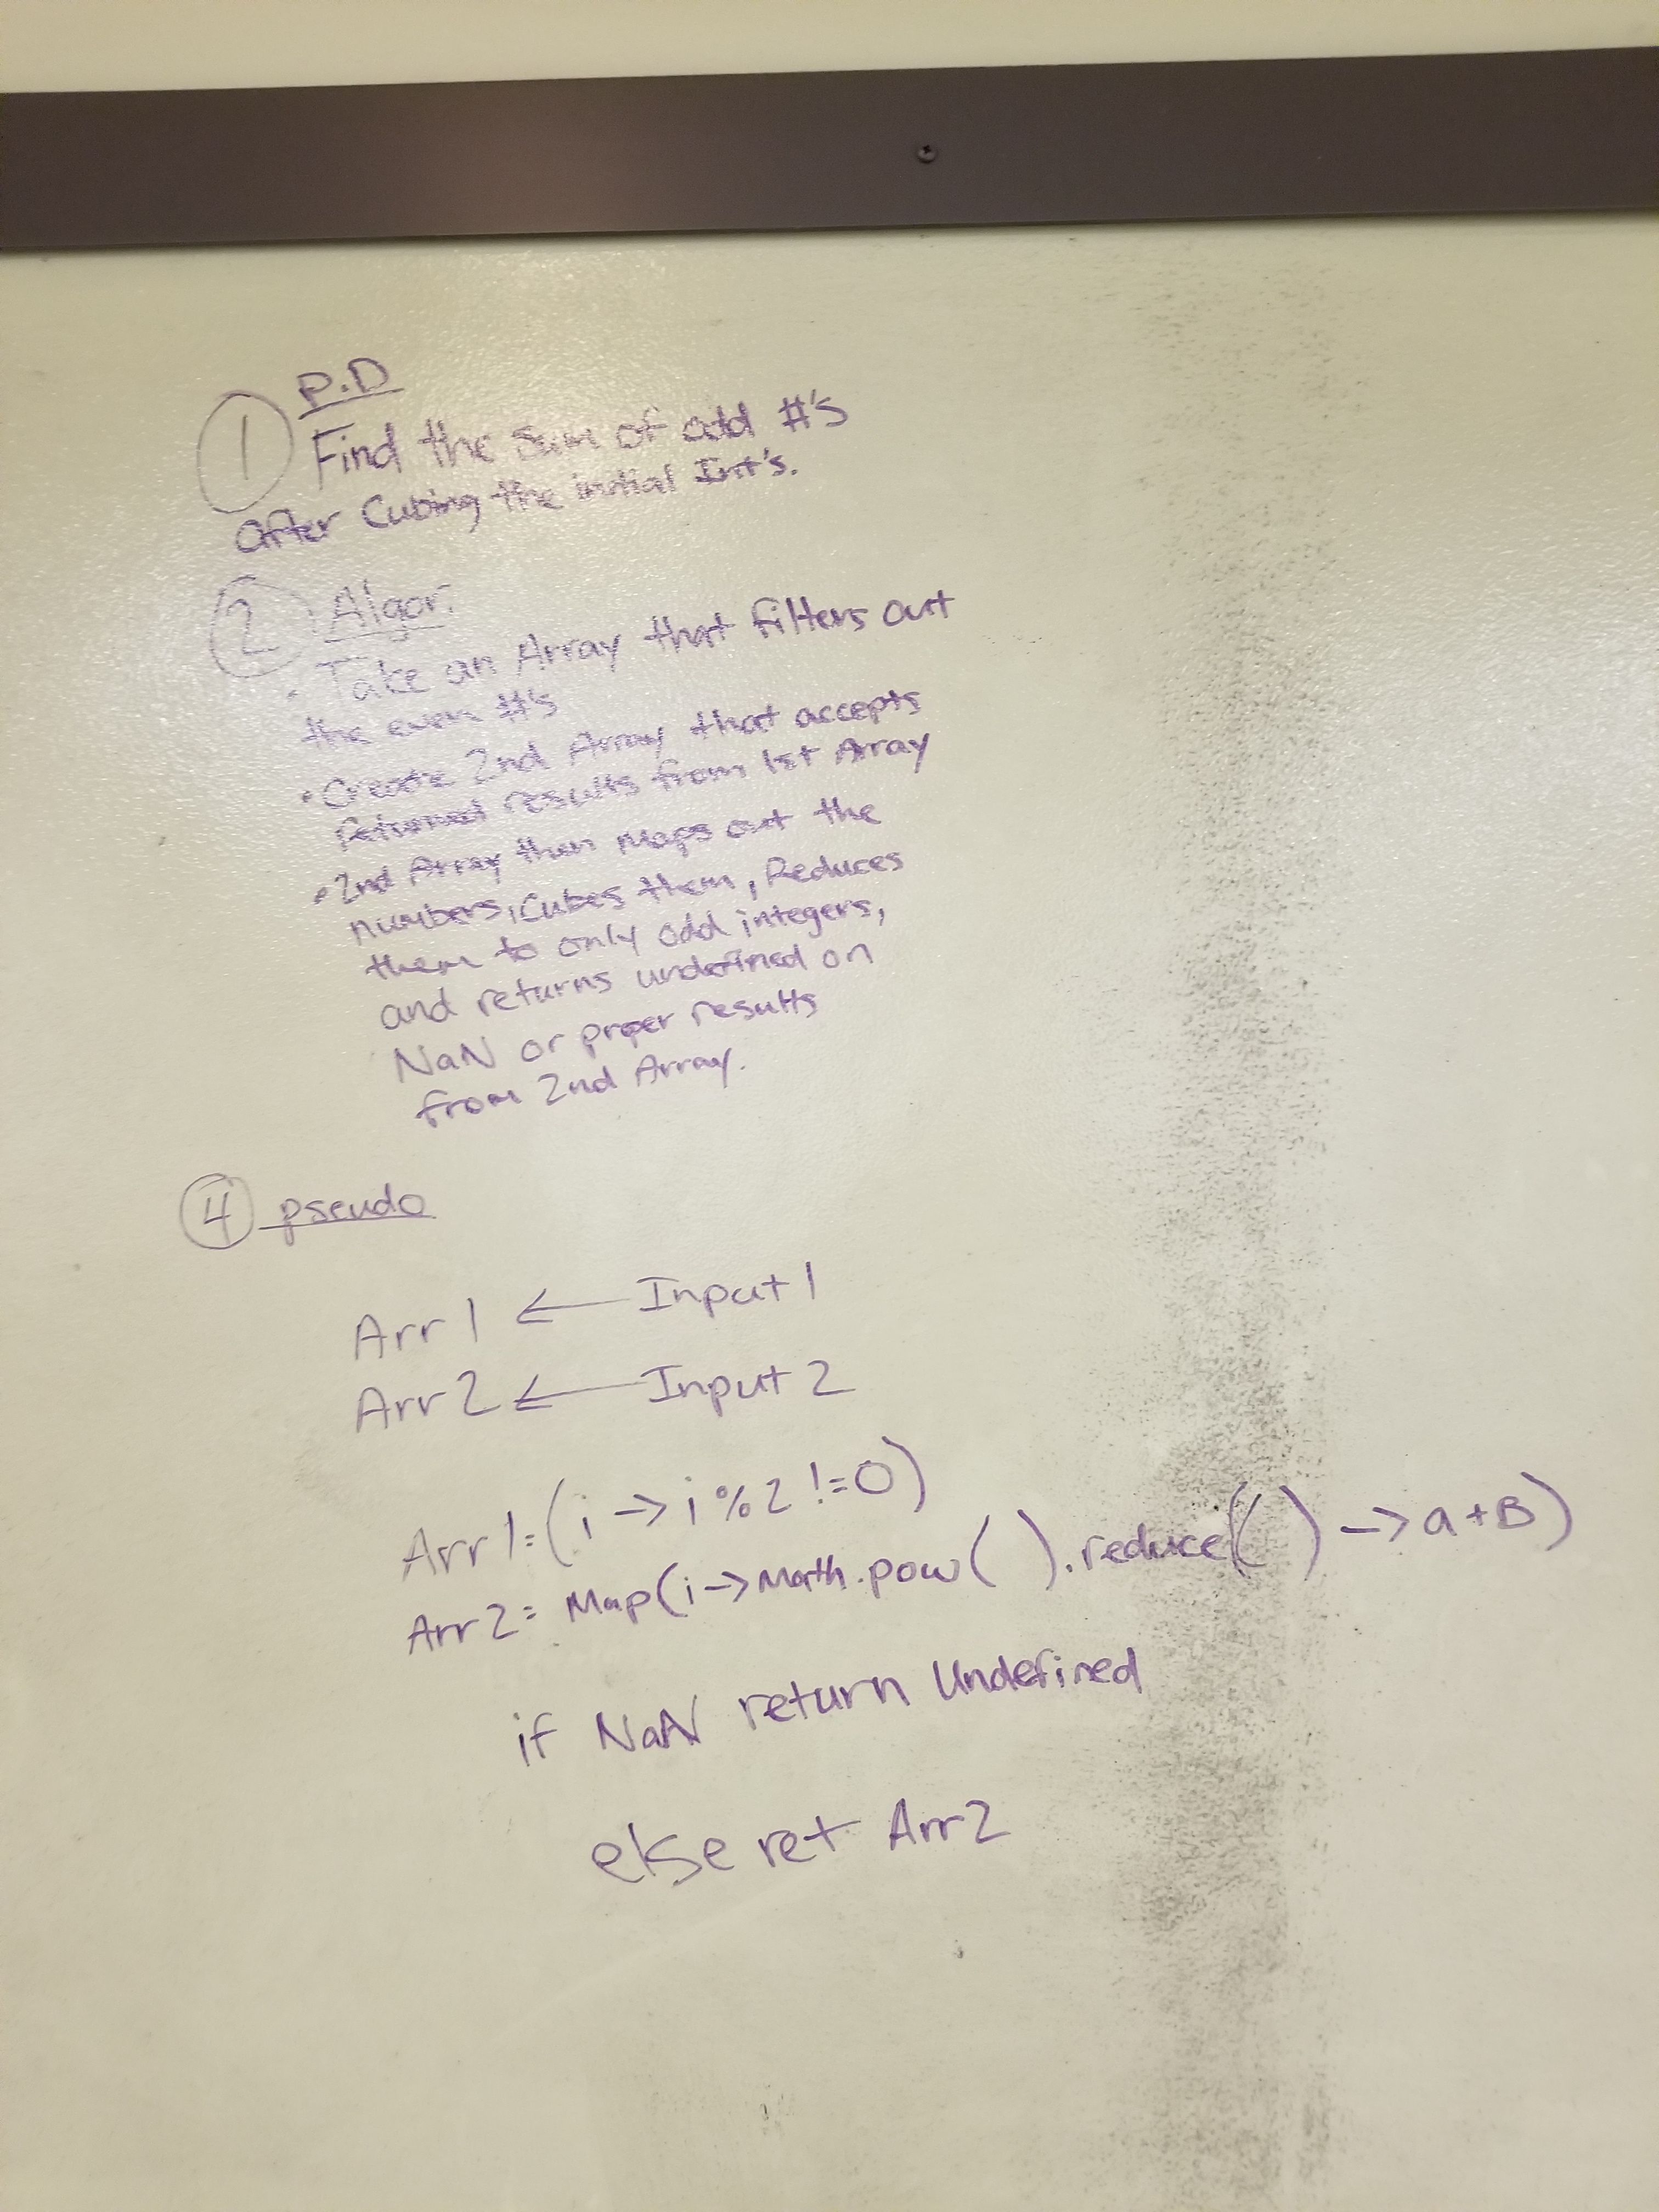 P.D
① Find the sum of odd #'s
after Cubing the initial Int's.
② Algor.
• Take an Array that filters out
the even #'s
• Create 2nd Array that accepts
Returned results from 1st Array
• 2nd Array then Maps out the
numbers, Cubes them, Reduces
them to only odd integers,
and returns undefined on
NaN or proper results
from 2nd Array.
④ pseudo
Arr 1 ← Input 1
Arr 2 ← Input 2
Arr 1 = (i → i % 2 != 0)
Arr 2 = Map(i → Math.pow( ).reduce(( ) → a + B)
if NaN return Undefined
else ret Arr2